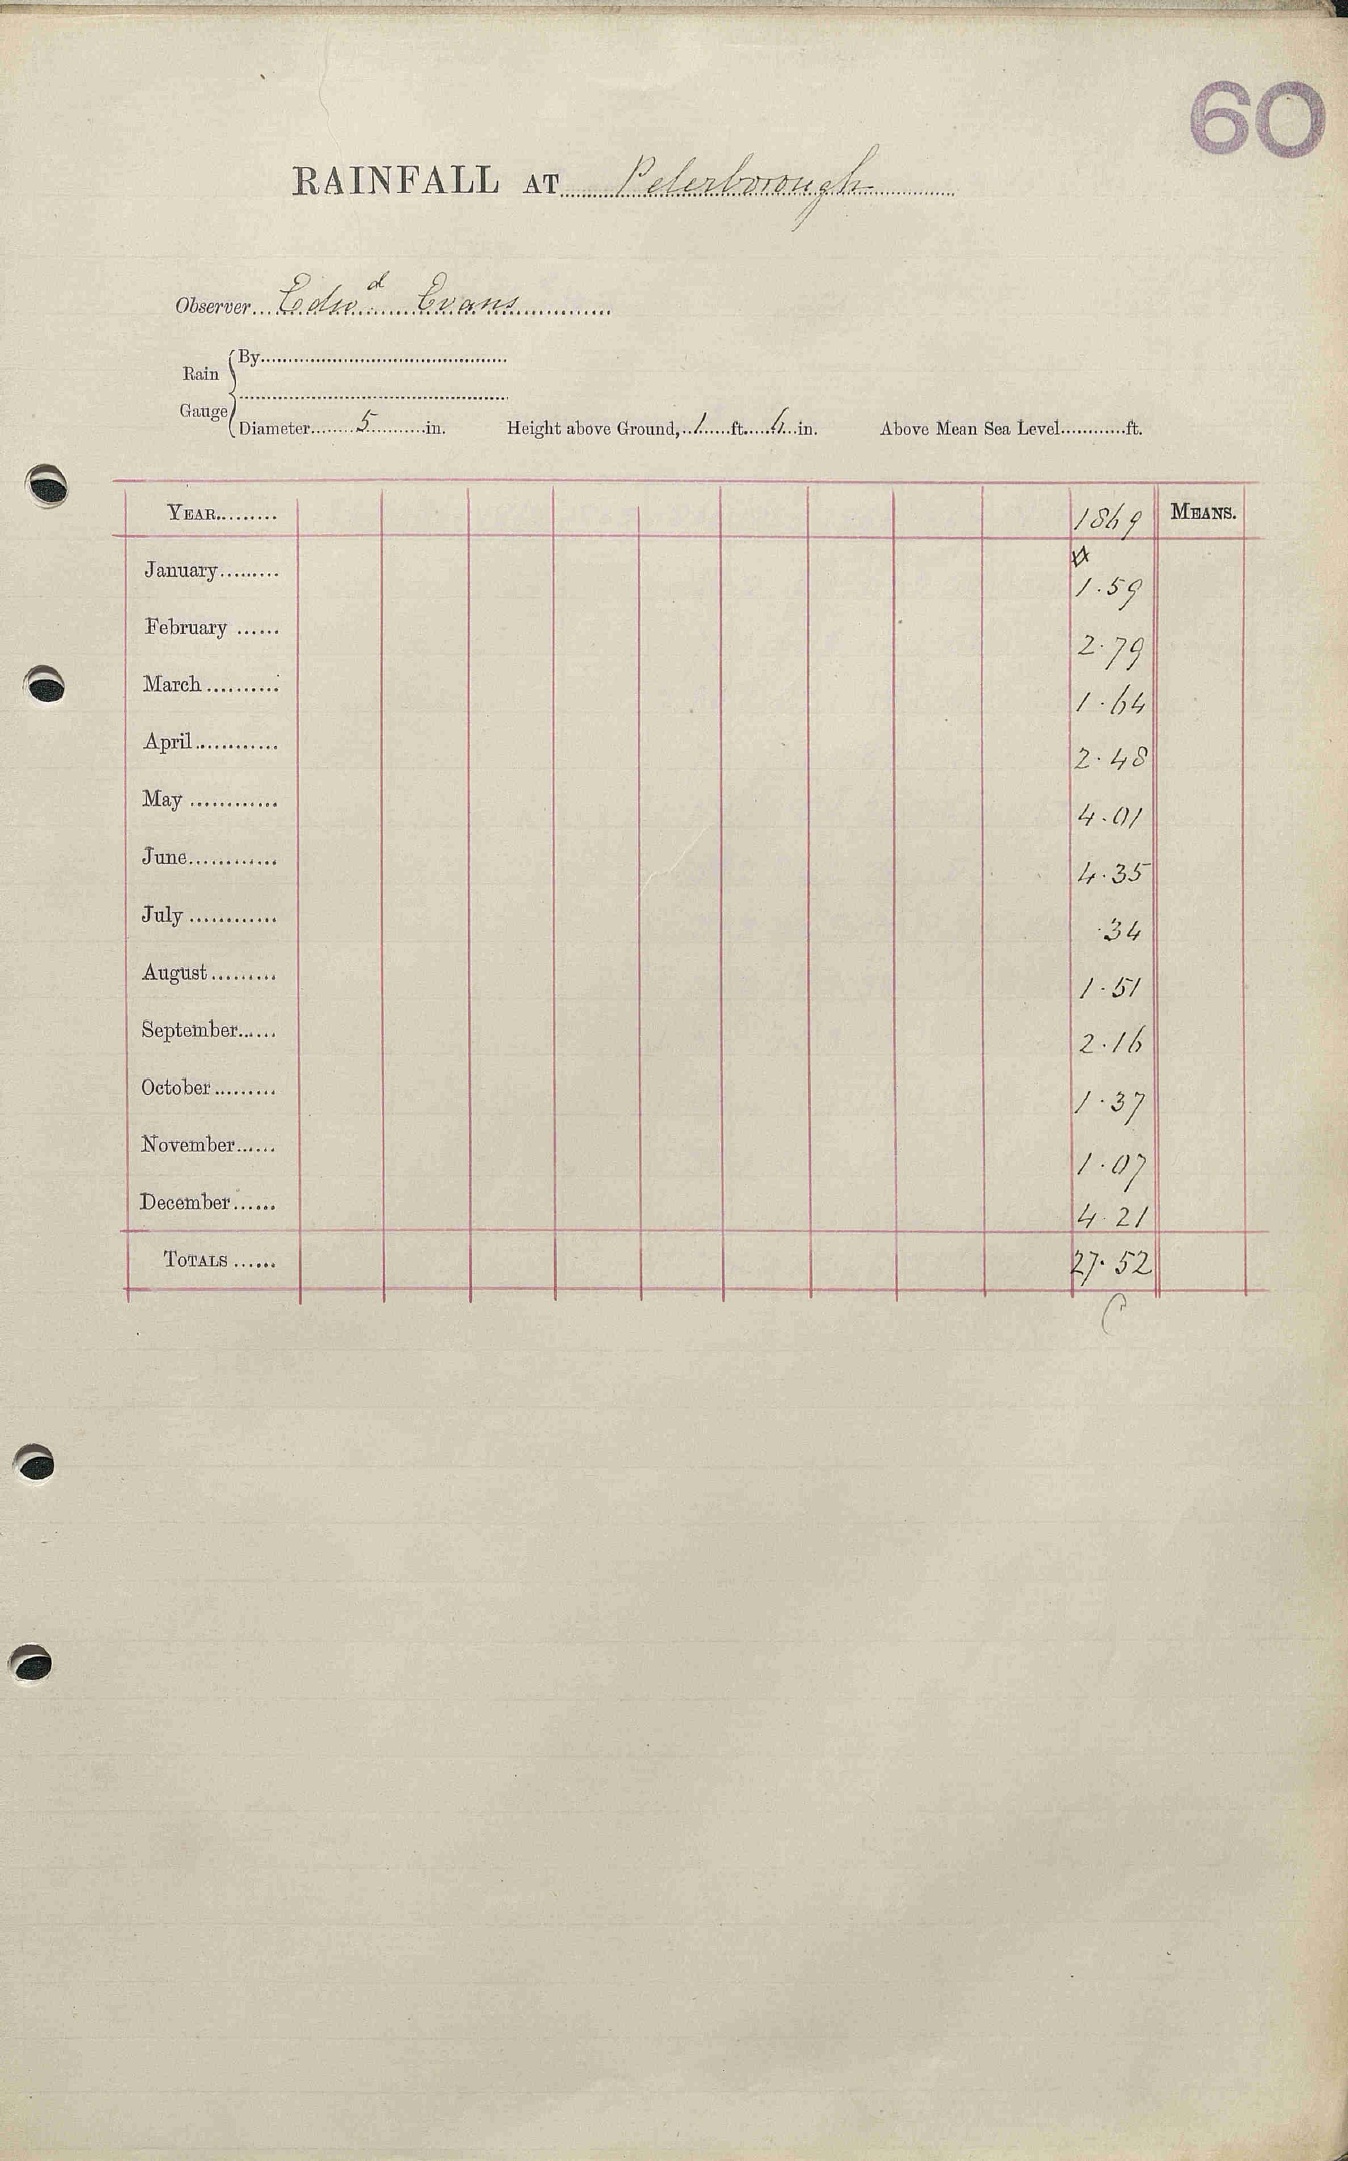 60
RAINFALL AT Peterborough
Observer Edwd Evans
Rain Gauge
By
Diameter 5 in. Height above Ground, 1 ft. 6 in. Above Mean Sea Level ft.
YEAR 1869 MEANS.
January 1.59
February 2.79
March 1.64
April 2.48
May 4.01
June 4.35
July .34
August 1.51
September 2.16
October 1.37
November 1.07
December 4.21
TOTALS 27.52